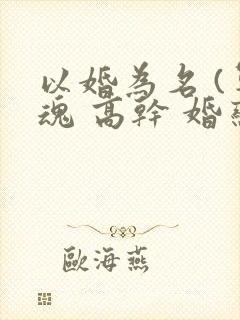 以婚為名(
魂 高幹 婚
歐海燕